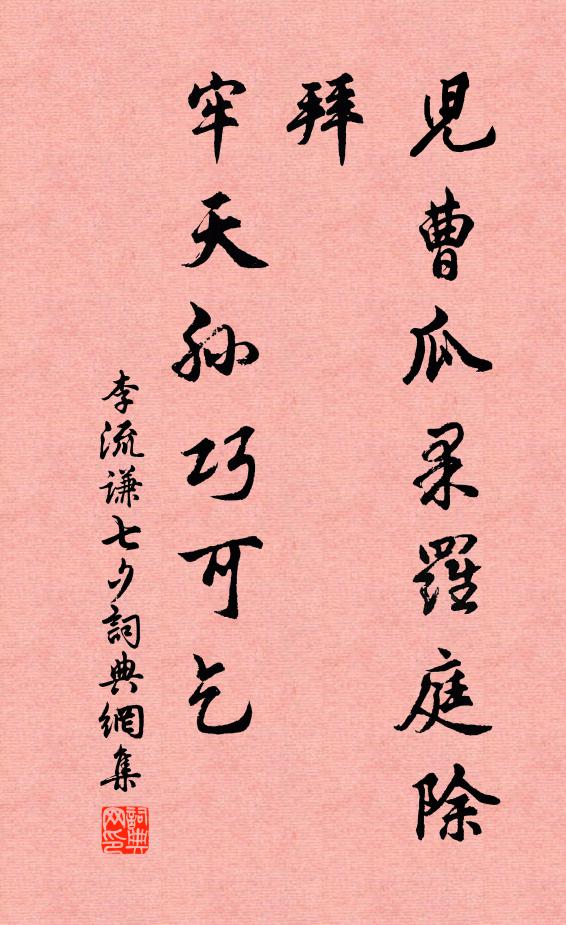 兒曹瓜果羅庭除
拜
牢天孫巧可乞
李流謙七夕詞典網集
詞典网印